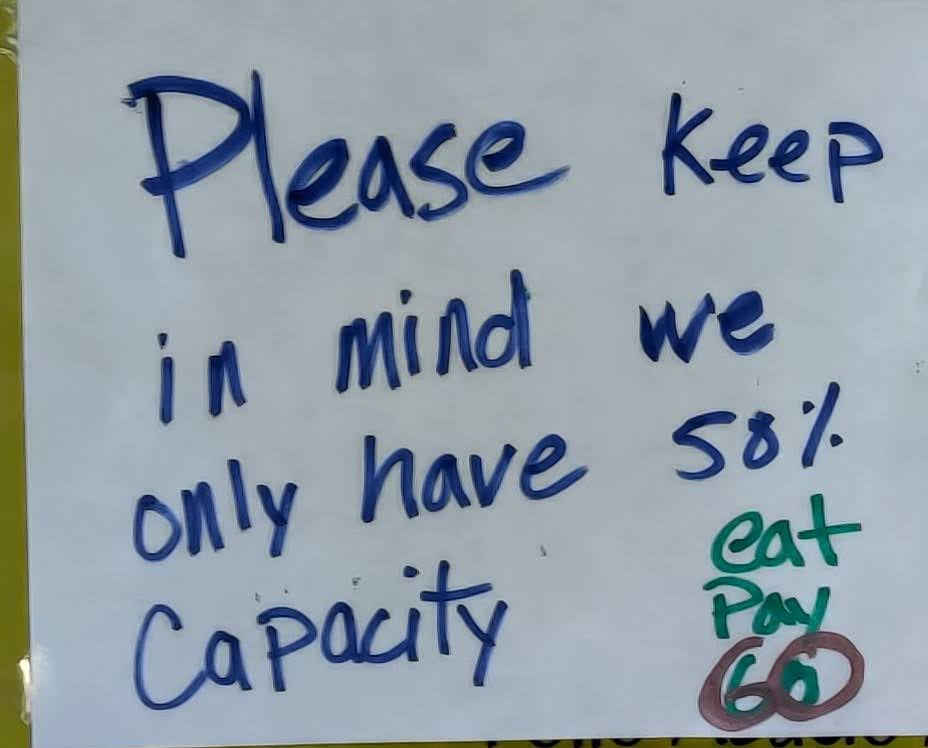 Please keep
in mind we
only have 50%
Capacity
eat
Pay
Go